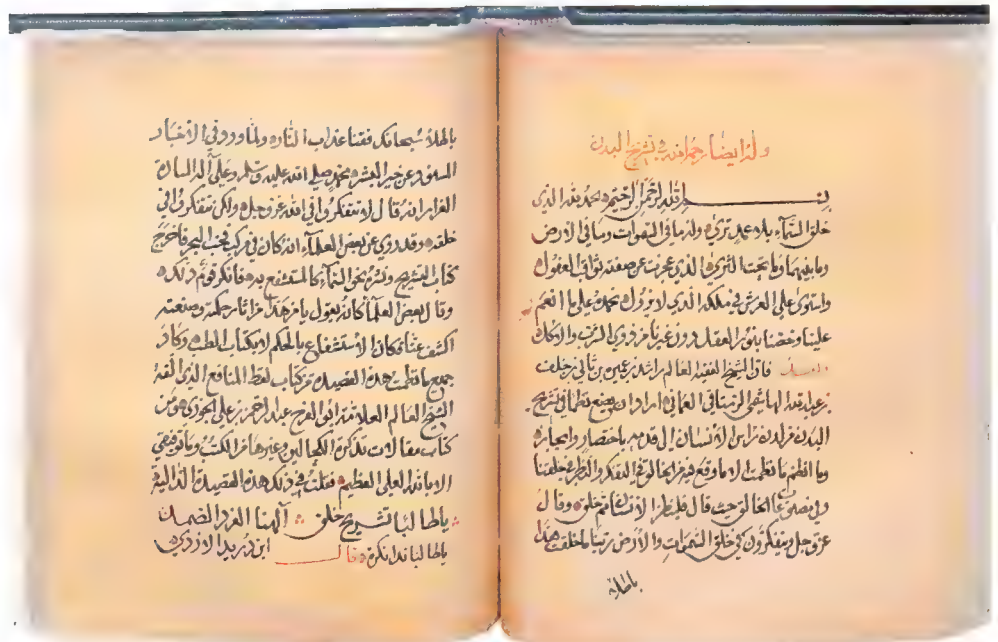 وله ايضا رحمه الله في تشريح البدن
بسم الله الرحمن الرحيم الحمد لله الذي
خلق السماء بلا عمد ترى وله ما في السموات وما في الأرض
وما بينهما وما تحت الثرى الذي عجزت عن صفته ثواقب العقول
واستوى على العرش في ملكه الذي لا يزول نحمده على ما انعم
علينا وخصنا بنور العقل دون غيرنا من ذوي الشرب والأكل
قال الشيخ الفقيه العالم راشد بن عميره بن ثاني بن خلف
بن عبدالله الهاشمي الرستاقي العماني اما راد ان يضع نظما في تشريح
البدن من لدن راس الانسان الى قدمه باختصار وايجازه
وما انظم ما نظمت الا ما وقع فيه من الخالق في التفكر والنظر في خلقنا
وفي الخالق حيث قال فلينظر الانسان مم خلق وقال
عز وجل ويتفكرون في خلق السموات والأرض ربنا ما خلقت هذا
باطلا
باطلا سبحانك فقنا عذاب النار ولما ورد في الأخبار
عن خير البشر محمد صلى الله عليه وسلم وعلى آله السادة
الغرر انه قال لا تتفكروا في الله عز وجل ولكن تفكروا في
خلقه وقد روي عن بعض العلماء انه كان في مركب في البحر فاخرج
كتاب التشريح ونشره نحو السماء كالمستشفع به فانكر قوم ذلك
وقال بعض العلماء كانه يقول يا من هذا من اثار حكمته وصنعته
اكشف عنا فكان الاستشفاع بالحكم لا بكتاب الطب وكان
جميع ما نظمت هذه القصيدة من كتاب لقط المنافع الذي الفه
الشيخ العالم العلامة ابو الفرج عبد الرحمن بن علي الجوزي ومن
كتاب مقالات تذكرة الكحالين وغيرها من الكتب وما توفيقي
الا بالله العلي العظيم فقلت في ذلك هذه القصيدة الدالية
يا طالبا تشريح خلق الهنا الفرد الصمد